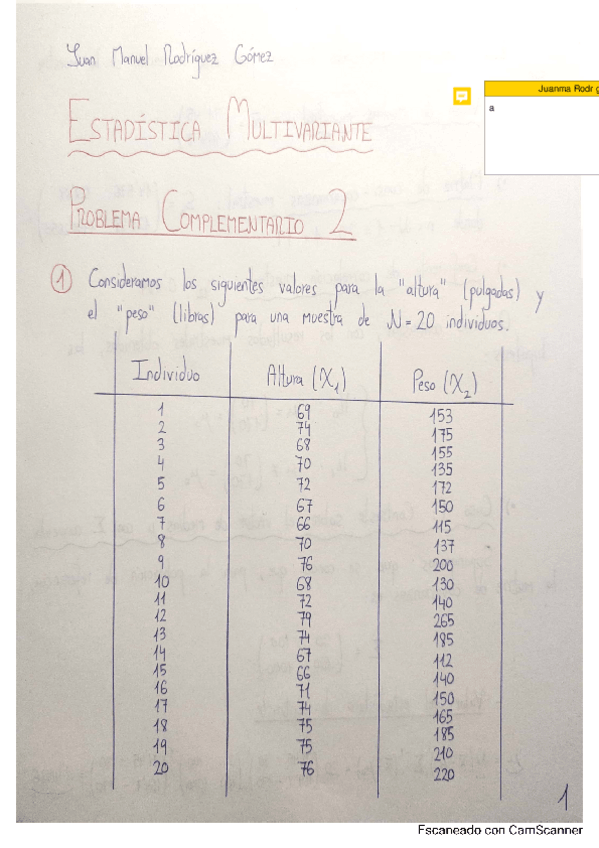 Juan Manuel Rodríguez Gómez
Juanma Rodríg
a
ESTADÍSTICA MULTIVARIANTE
PROBLEMA COMPLEMENTARIO 2
1 Consideramos los siguientes valores para la "altura" (pulgadas) y
el "peso" (libras) para una muestra de N=20 individuos.
Individuo Altura (X1) Peso (X2)
1 69 153
2 74 175
3 68 155
4 70 135
5 72 172
6 67 150
7 66 115
8 70 137
9 76 200
10 68 130
11 72 140
12 79 265
13 74 185
14 67 112
15 66 140
16 71 150
17 74 165
18 75 185
19 75 210
20 76 220
1
Escaneado con CamScanner